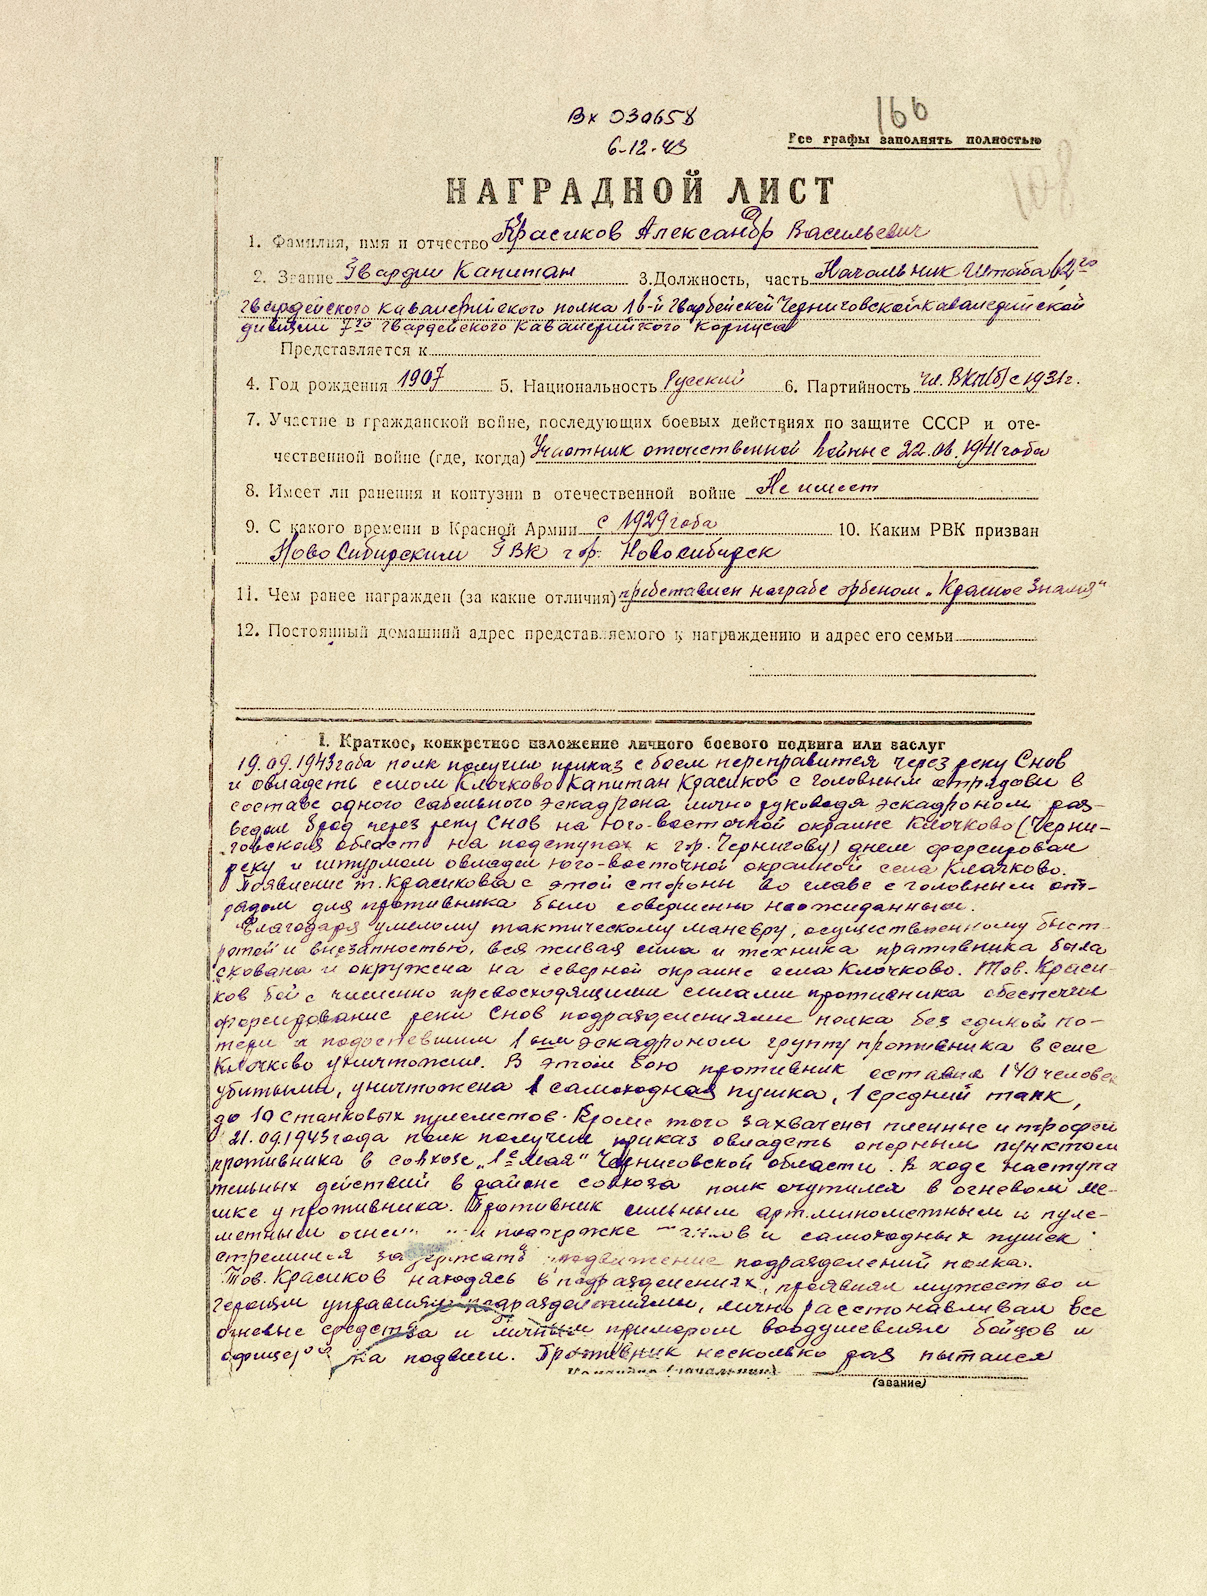 Вх 030658
6-12-43
166
Все графы заполнять полностью
108
НАГРАДНОЙ ЛИСТ
1. Фамилия, имя и отчество Красиков Александр Васильевич
2. Звание Гвардии Капитан 3. Должность, часть Начальник Штаба 62го
гвардейского кавалерийского полка 16-й Гвардейской Черниговской кавалерийской
дивизии 7го гвардейского кавалерийского корпуса
Представляется к
4. Год рождения 1907 5. Национальность Русский 6. Партийность чл. ВКП(б) с 1931 г.
7. Участие в гражданской войне, последующих боевых действиях по защите СССР и оте-
чественной войне (где, когда) Участник отечественной войны с 22.06.1941 года
8. Имеет ли ранения и контузии в отечественной войне Не имеет
9. С какого времени в Красной Армии с 1929 года 10. Каким РВК призван
Ново Сибирским ГВК гор. Новосибирск
11. Чем ранее награжден (за какие отличия) представлен награде орденом „Красное Знамя"
12. Постоянный домашний адрес представляемого к награждению и адрес его семьи
I. Краткое, конкретное изложение личного боевого подвига или заслуг
19.09.1943 года полк получил приказ с боем переправится через реку Снов
и овладеть селом Клочково Капитан Красиков с головным отрядом в
составе одного сабельного эскадрона лично руководя эскадроном раз-
ведал брод через реку Снов на Юго-восточной окраине Клочково (Черни-
говская область на подступах к гор. Чернигову) днем форсировал
реку и штурмом овладел юго-восточной окраиной села Клочково.
Появление т. Красикова с этой стороны во главе с головным от-
рядом для противника было совершенно неожиданным.
Благодаря умелому тактическому маневру, осуществленному быст-
ротой и внезапностью, вся живая сила и техника противника была
скована и окружена на северной окраине села Клочково. Тов. Краси-
ков бой с численно превосходящими силами противника обеспечил
форсирование реки Снов подразделениями полка без единой по-
тери и подоспевшим 1 ым эскадроном группу противника в селе
Клочково уничтожил. В этом бою противник оставил 140 человек
убитыми, уничтожена 1 самоходная пушка, 1 средний танк,
до 10 станковых пулеметов. Кроме того захвачены пленные и трофеи
21.09.1943 года полк получил приказ овладеть опорным пунктом
противника в совхозе „1е мая" Черниговской области. В ходе наступа
тельных действий в районе совхоза полк очутился в огневом ме-
шке у противника. Противник сильным арт. минометным и пуле-
метным огнем и поддержке и самоходных пушек
стремился задержать продвижение подразделений полка.
Тов. Красиков находясь в подразделениях, проявляя мужество и
героизм управлял подразделениями, лично расстонавливал все
огневые средства и личным примером воодушевлял бойцов и
офицеров на подвиги. Противник несколько раз пытался
Командир (начальник)
(звание)